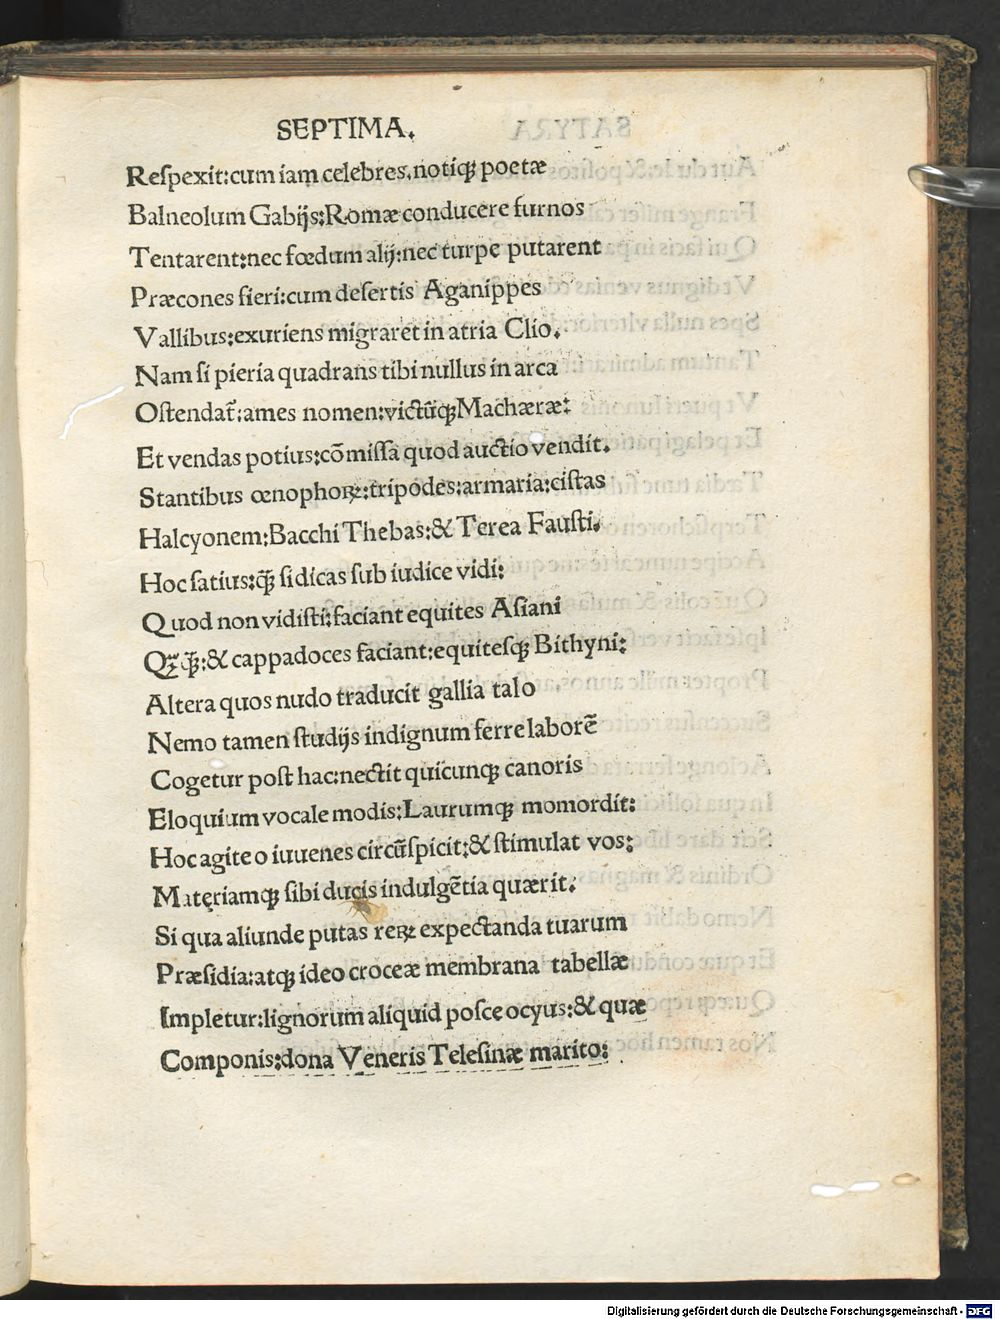 SEPTIMA.
Reſpexit:cum iam celebres.notiqꝫ poetæ
Balneolum Gabijs:Romæ conducere furnos
Tentarent:nec fœdum alij:nec turpe putarent
Præcones fieri:cum deſertis Aganippes
Vallibus:exuriens migraret in atria Clio.
Nam ſi pieria quadrans tibi nullus in arca
Oſtendat̃:ames nomen:victũqꝫ Machæræ:
Et vendas potius:cõmiſſa quod auctio vendit.
Stantibus œnophoꝝ:tripodes:armaria:ciſtas
Halcyonem:Bacchi Thebas:& Terea Fauſti.
Hoc ſatius:qꝫ̃ ſi dicas ſub iudice vidi:
Quod non vidiſti:faciant equites Aſiani
Qꝫ̃qꝫ̃:& cappadoces faciant:equiteſqꝫ Bithyni:
Altera quos nudo traducit gallia talo
Nemo tamen ſtudijs indignum ferre laborẽ
Cogetur poſt hac:nectit quicunqꝫ canoris
Eloquium vocale modis:Laurumqꝫ momordit:
Hoc agite o iuuenes circũſpicit:& ſtimulat vos:
Materiamqꝫ ſibi ducis indulgẽtia quærit.
Si qua aliunde putas reꝝ expectanda tuarum
Præſidia:atqꝫ ideo croceæ membrana tabellæ
Impletur:lignorum aliquid poſce ocyus:& quæ
Componis:dona Veneris Teleſinæ marito:
Digitalisierung gefördert durch die Deutsche Forschungsgemeinschaft - DFG